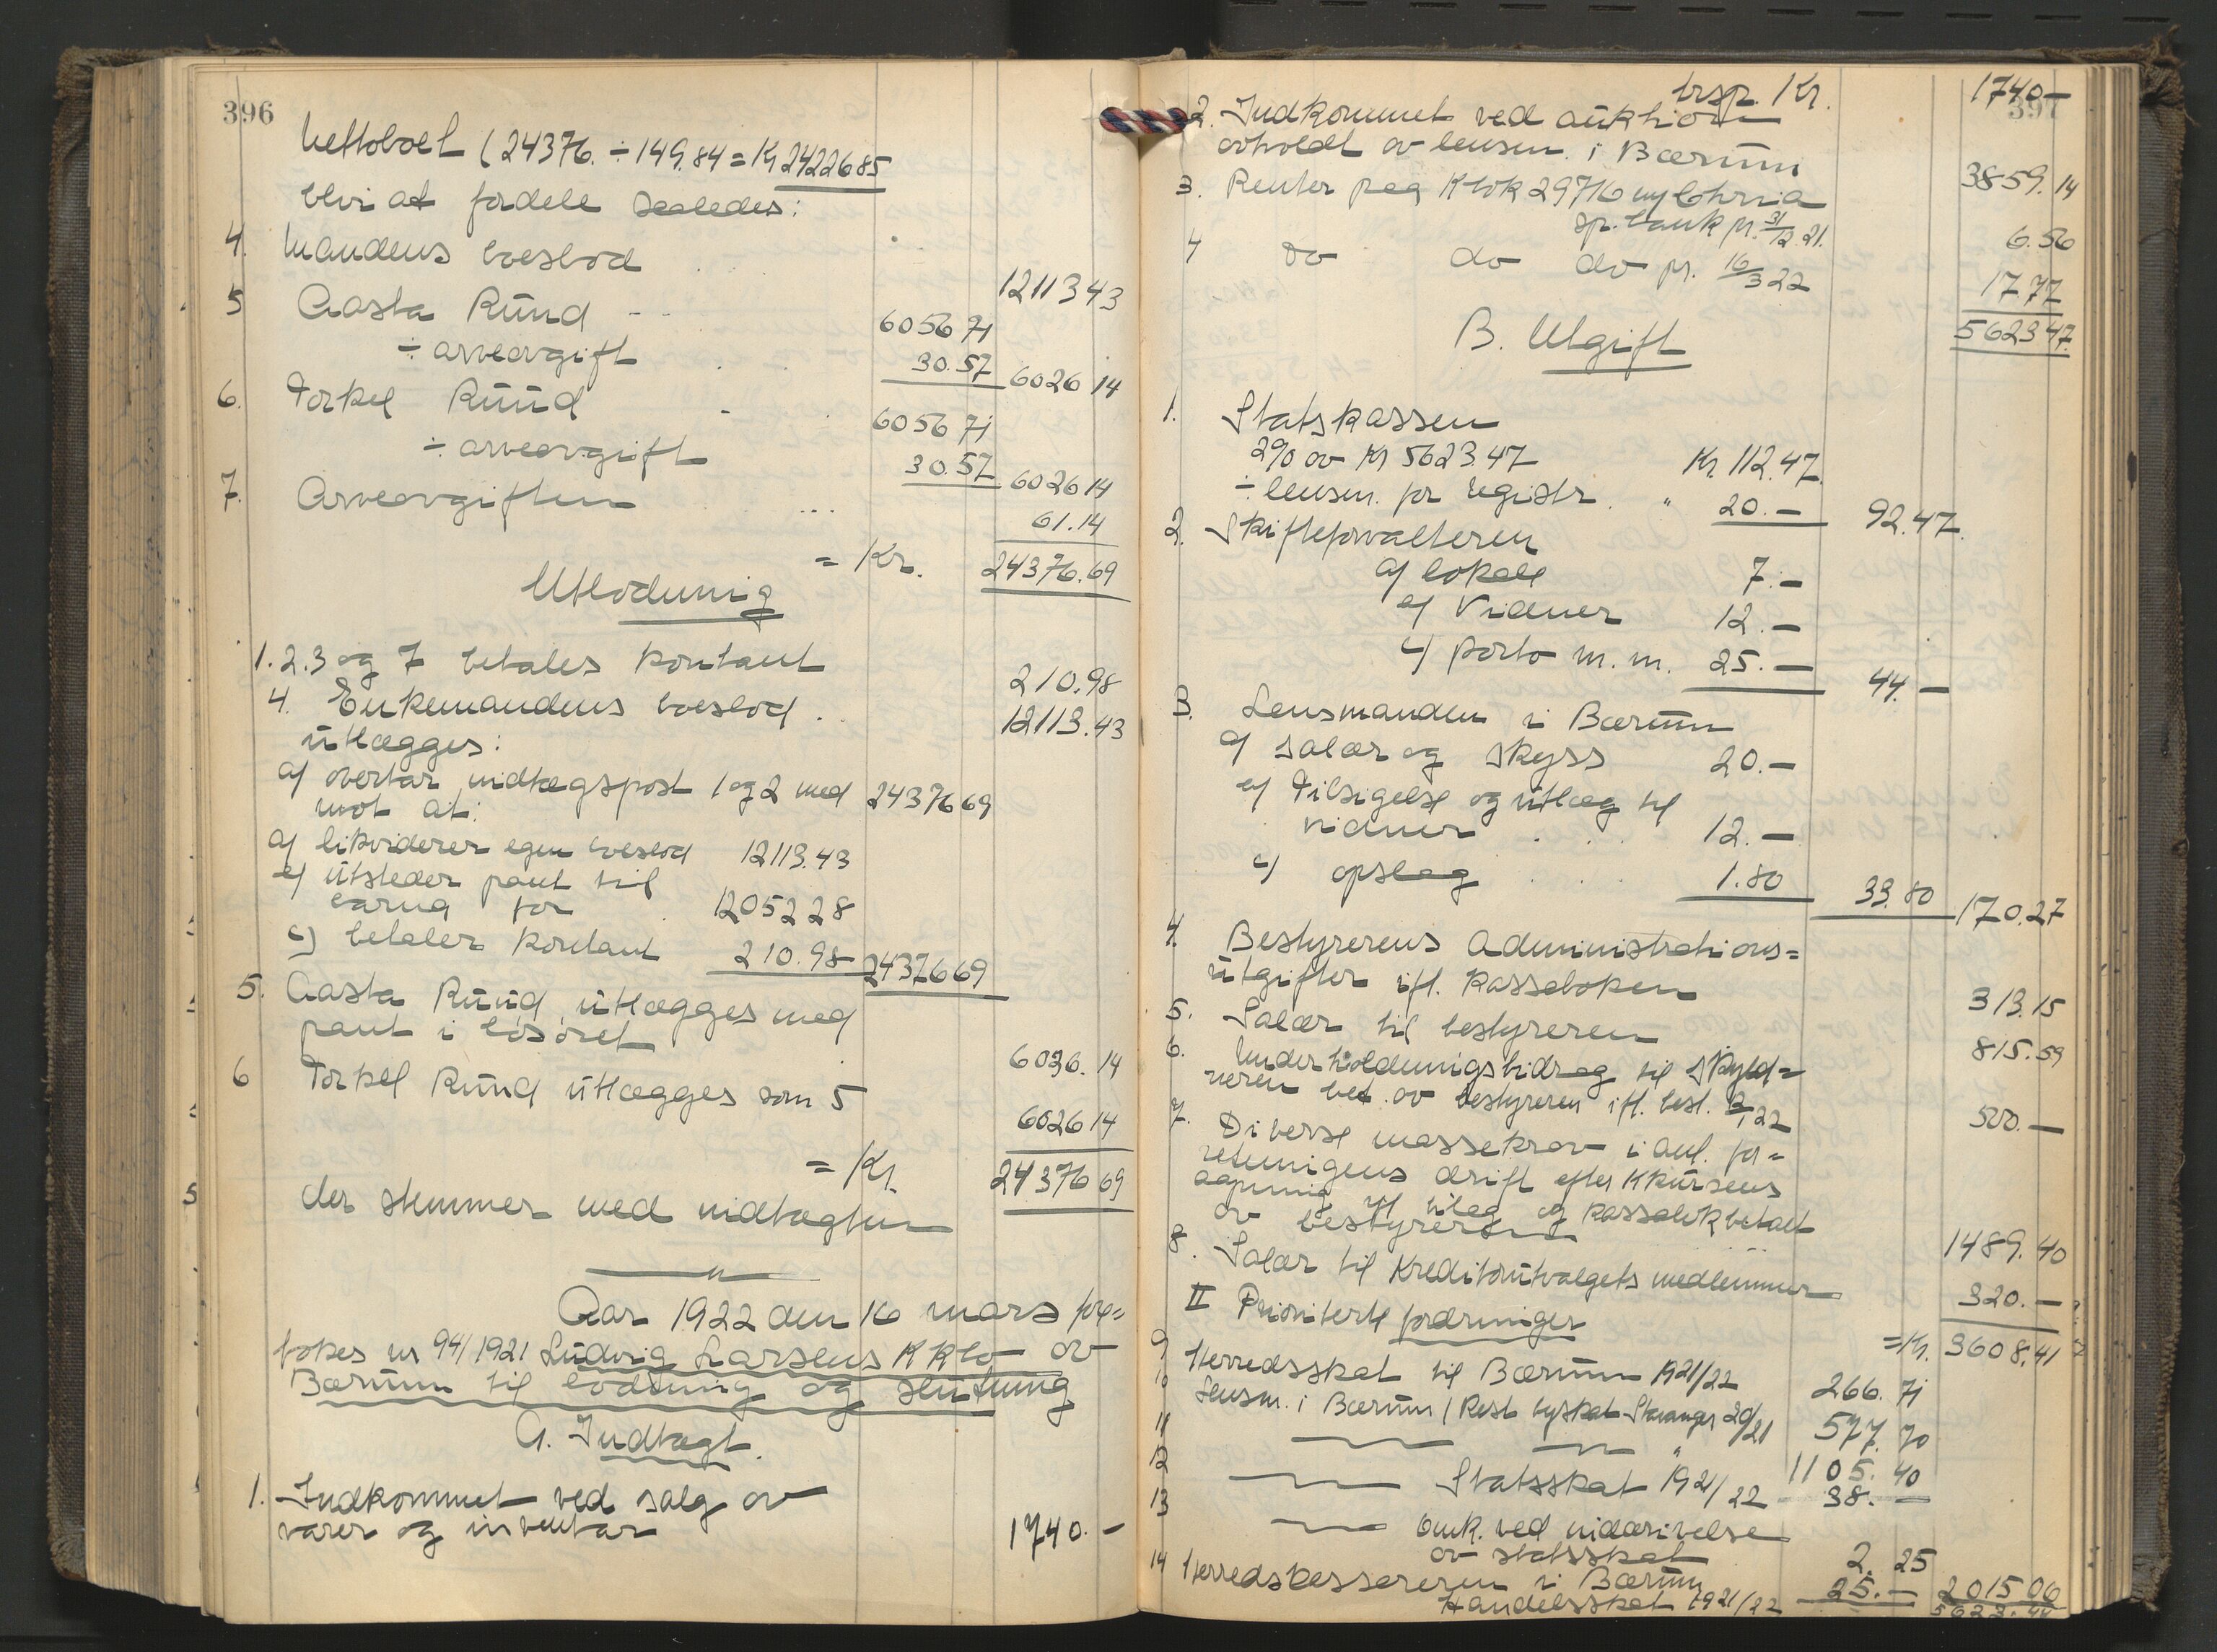 396
Nettoboet (24376. ÷ 149.84 = Kr 24226 85
blir at fordele saaledes:
4. Mandens boeslod 12113 43
5 Aasta Ruud 6056 71
÷ arveavgift 30.57 6026 14
6. Torkel Ruud 6056 71
÷ arveavgift 30.57 6026 14
7. Arveavgiften 61.14
= Kr. 24376.69
Utlodning
1.2.3 og 7 betales kontant 210.98
4. Enkemandens boeslod 12113.43
utlægges:
a) overtar indtægspost 1 og 2 med 24376 69
mot at:
a) likviderer egen boeslod 12113.43
b) utsteder pant til
barna for 12052 28
c) betaler kontant 210.98 24376 69
5. Aasta Ruud utlægges med
pant i løsøret 6026.14
6 Torkel Ruud utlægges som 5 6026 14
= Kr. 24376 69
der stemmer med indtægten
Aar 1922 den 16 mars fore=
tokes nr 94/1921 Ludvig Larsens K Kbo av
Bærum til lodning og slutning
A. Indtægt.
1. Indkommet ved salg av
varer og inventar 1740.-
397
trsp. Kr. 1740 —
2. Indkommet ved auktion
avholdt av lensm. i Bærum 3859.14
3. Renter paa K bok 29716 my Christiania
sp.bank pr. 31/12.21. 6.56
4 do do do pr. 16/3 22 17.77
5623 47.
B. Utgift
1. Statskassen
2% av Kr 5623.47 Kr. 112.47.
÷ lensm. for registr. " 20.— 92.47.
2. Skifteforvalteren
a) lokale 7.—
b) Vidner 12.—
c) porto m.m. 25.— 44.—
3. Lensmanden i Bærum
a) salær og skyss 20.—
b) Tilsigelse og utlæg til
vidner 12.—
c) opslag 1.80 33.80 170.27
4. Bestyrerens Administrations=
utgifter ifl. kasseboken 313.15
5. Salær til bestyreren 815.59
6. Underholdningsbidrag til skyld=
neren bet. av bestyreren ifl. besl. 22 500.—
7. Diverse massekrav i anl. for=
retningens drift efter Kkursens
aapning ifl bilag og kassebok betalt
av bestyreren 1489.40
8. Salær til Kreditorutvalgets medlemmer 320.—
II Prioriterte fordringer =Kr. 3608.41
9 Herredsskat til Bærum 1921/22 266.71
10 Lensm. i Bærum (Rest byskat Stavanger 20/21 577.70
11 " 1105.40
12 Statsskat 1921/22 38.—
13 omk. ved inddrivelse
av statsskat 2.25
14 Herredskassereren i Bærum
Handelsskat 1921/22 25.— 2015 06
5623.47